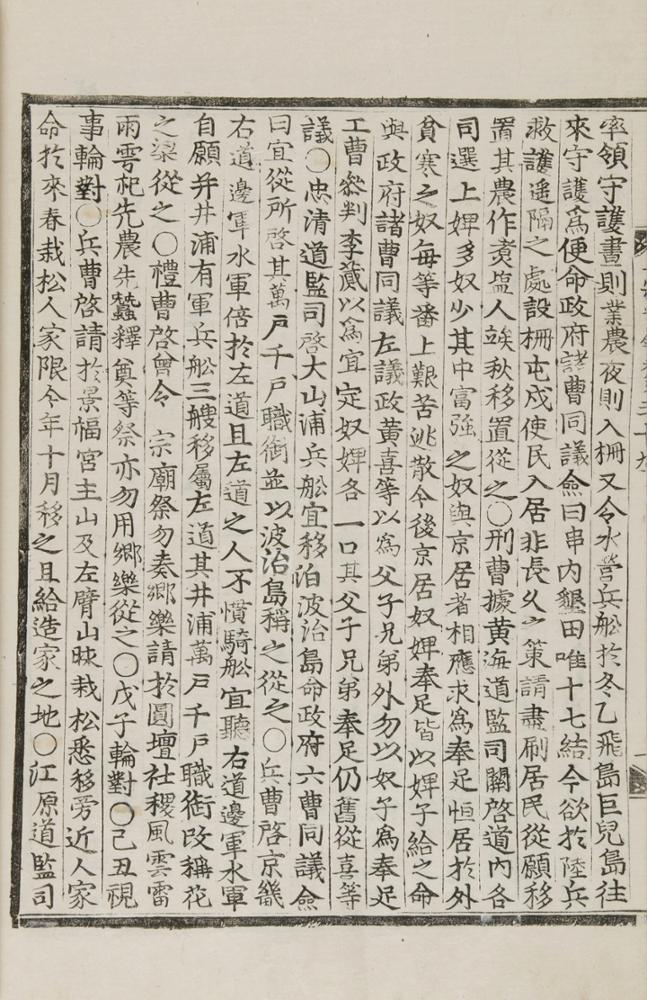 率領守護晝則業農夜則入柵又令水營兵船於冬乙飛島巨兒島往
來守護爲便命政府諸曹同議僉曰串内墾田唯十七結今欲於陸兵
救護遥隔之處設柵屯戍使民入居非長久之策請盡刷居民從願移
置其農作煑塩人竢秋移置從之○刑曹據黄海道監司關啓道内各
司選上婢多奴少其中富強之奴與京居者相應求爲奉足恒居於外
貧寒之奴每等番上艱苦逃散今後京居奴婢奉足皆以婢子給之命
與政府諸曹同議左議政黄喜等以爲父子兄弟外勿以奴子爲奉足
工曹叅判李蕆以爲宜定奴婢各一口其父子兄弟奉足仍舊從喜等
議○忠清道監司啓大山浦兵船宜移泊波治島命政府六曹同議僉
曰宜從所啓其萬戶千戶職銜並以波治島稱之從之○兵曹啓京畿
右道邊軍水軍倍於左道且左道之人不慣騎船宜聽右道邊軍水軍
自願并井浦有軍兵船三艘移屬左道其井浦萬戶千戶職銜改稱花
之梁從之○禮曹啓曾令 宗廟祭勿奏鄉樂請於圓壇社稷風雲雷
雨雩祀先農先蠶釋奠等祭亦勿用鄉樂從之○戊子輪對○己丑視
事輪對○兵曹啓請於景福宮主山及左臂山脉栽松悉移旁近人家
命於來春栽松人家限今年十月移之且給造家之地○江原道監司